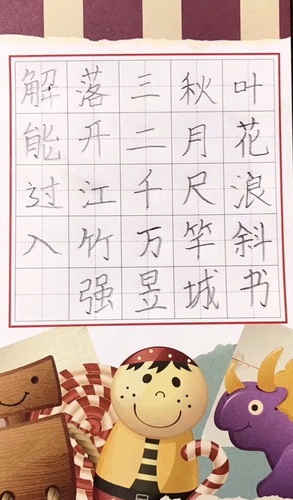 解落三秋叶
能开二月花
过江千尺浪
入竹万竿斜
强昱城书